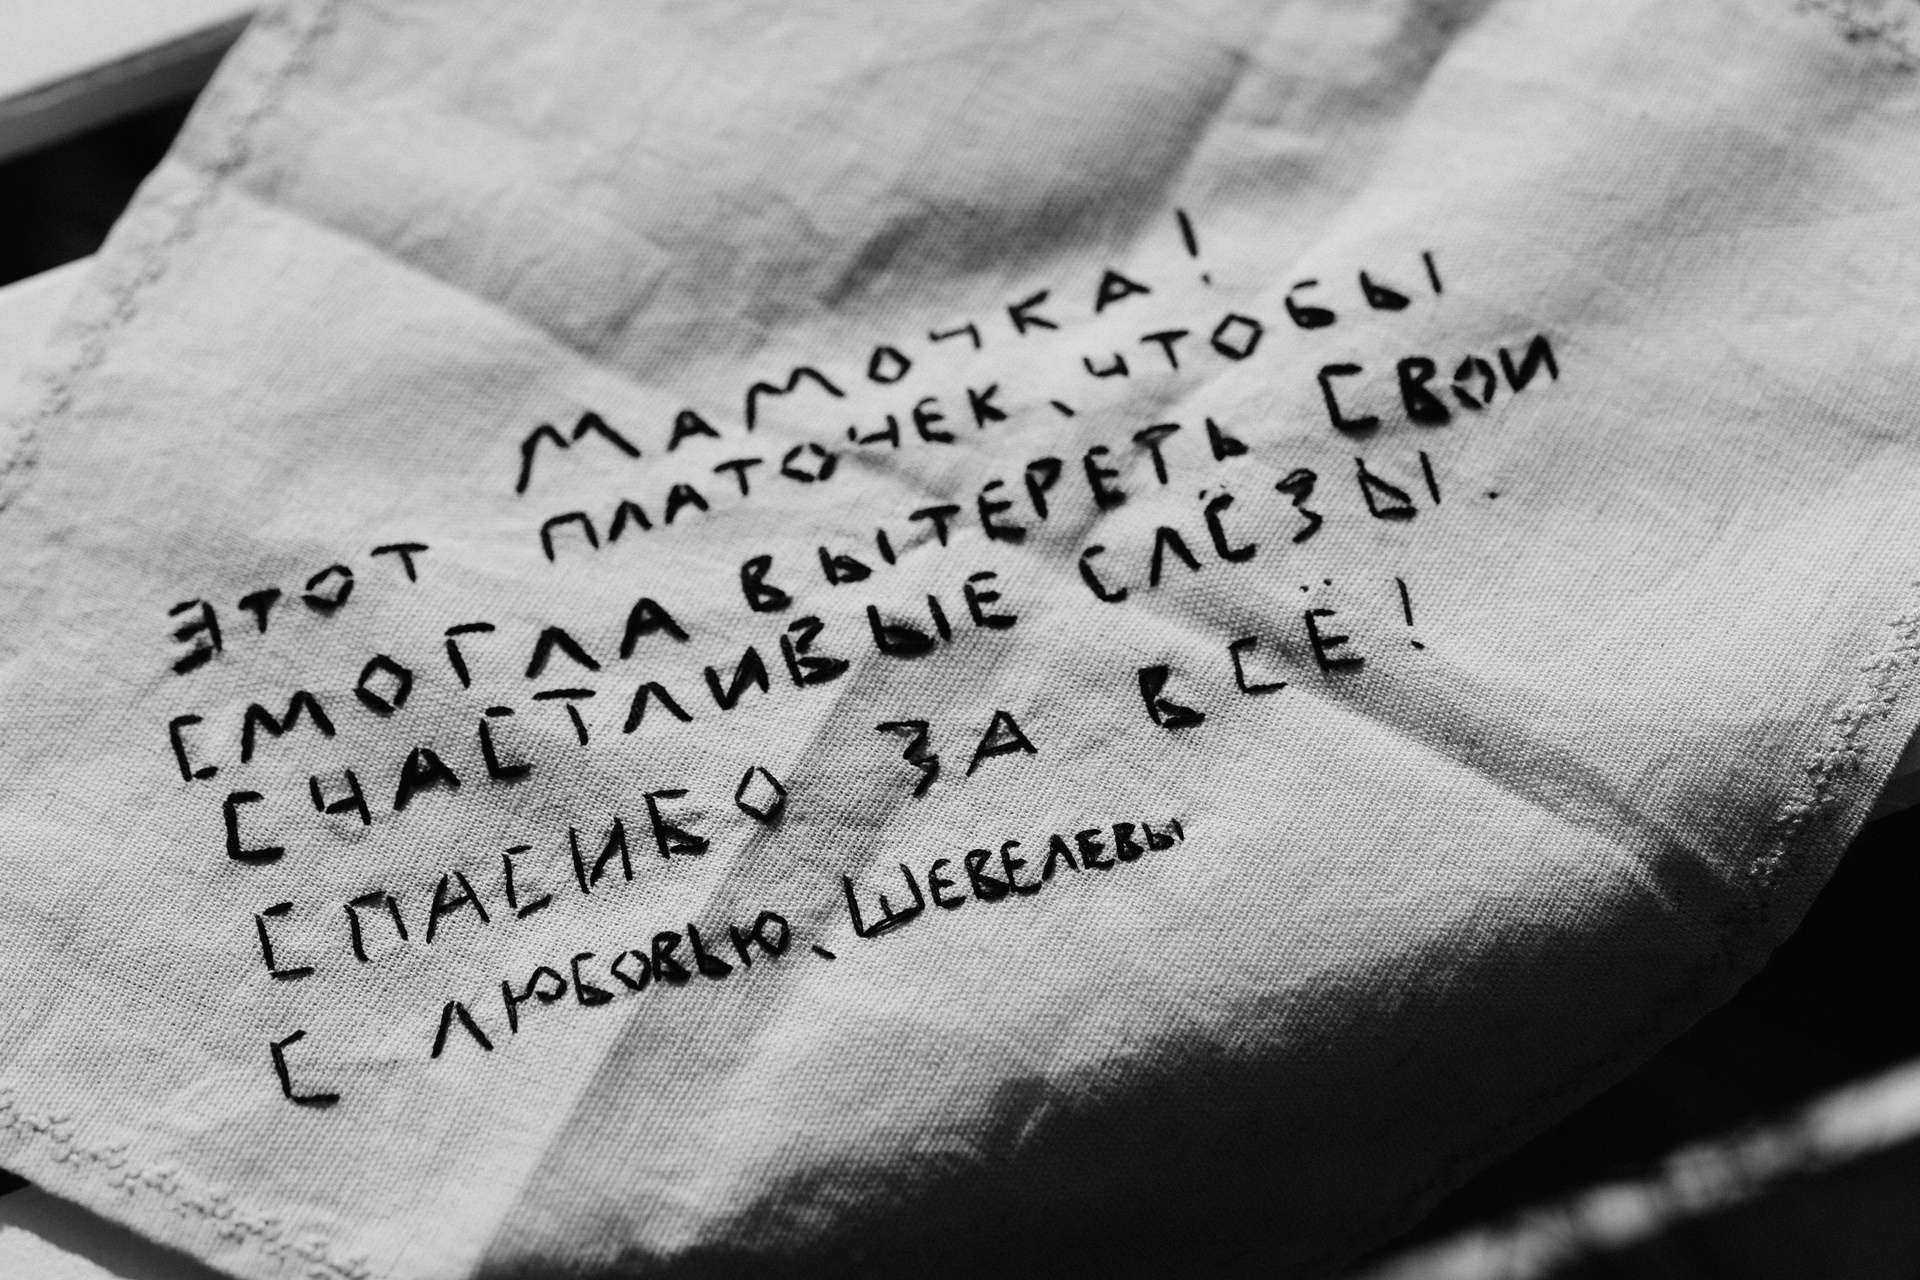 МАМОЧКА!
ЭТОТ ПЛАТОЧЕК, ЧТОБЫ
СМОГЛА ВЫТЕРЕТЬ СВОИ
СЧАСТЛИВЫЕ СЛЁЗЫ.
СПАСИБО ЗА ВСЁ!
С ЛЮБОВЬЮ, ШЕВЕЛЕВЫ